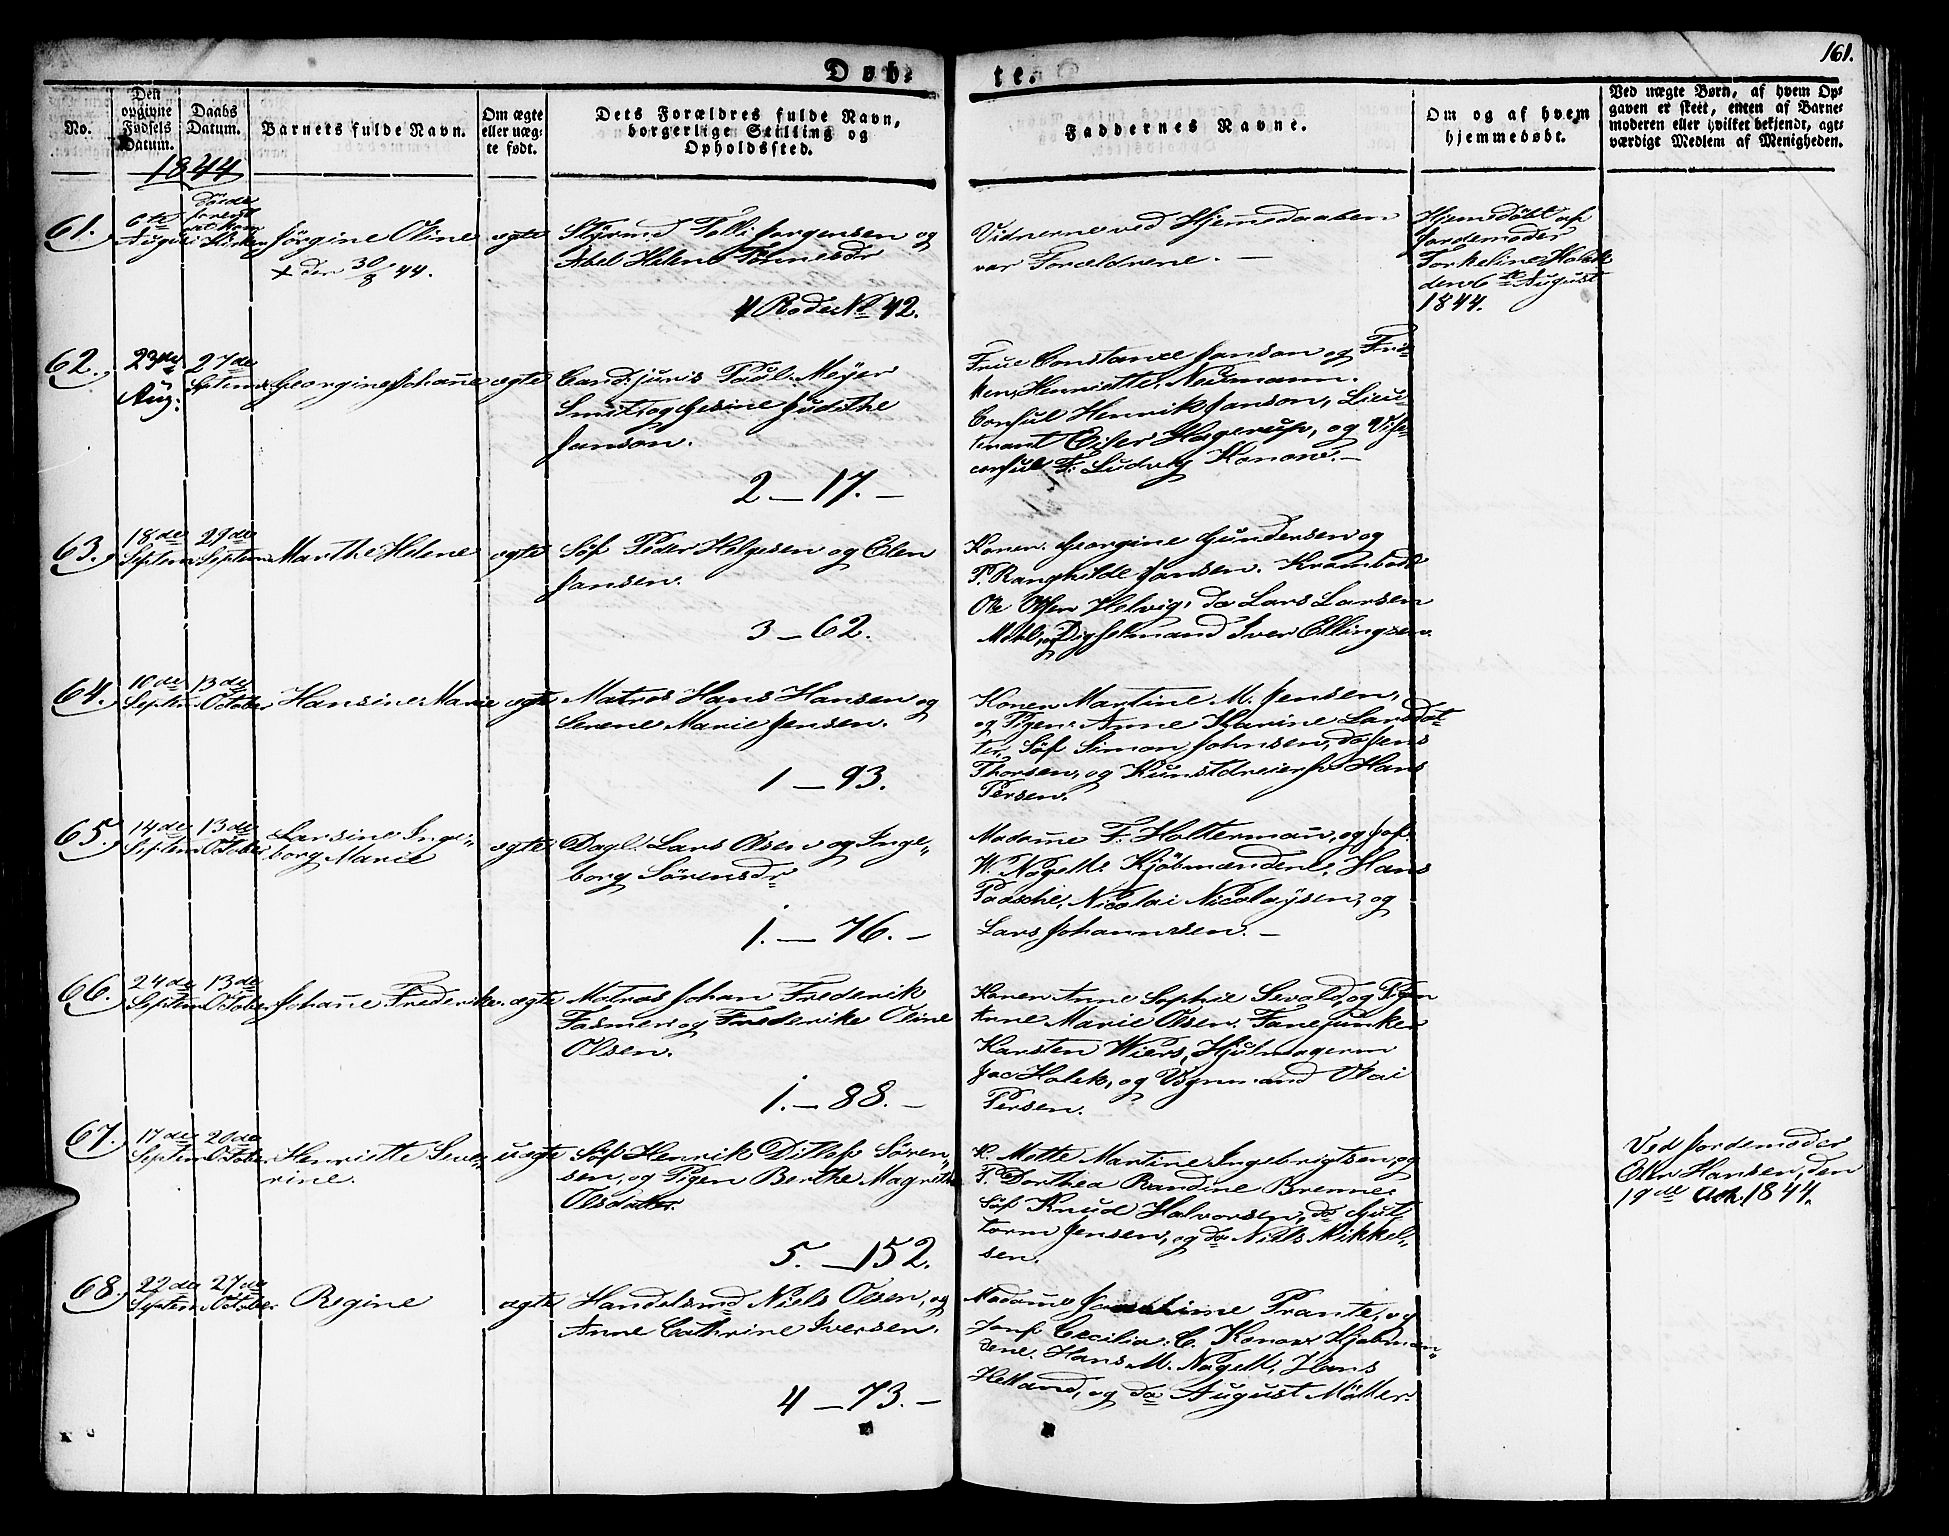 161.
Døb- te.
No.
Den
opgivne
Fødsels
Datum.
Daabs
Datum.
Barnets fulde Navn.
Om ægte
eller uæg-
te født.
Dets Forældres fulde Navn,
borgerlige Stilling og
Opholdssted.
Faddernes Navne.
Om og af hvem
hjemmedøbt.
Ved uægte Børn, af hvem Op-
gaven er skeet, enten af Barne-
moderen eller hvilket bekjendt, agt-
værdigt Medlem af Menigheden.
1844
61.
6te
August
Døde
forend
at kom
i Kirken
Jørgine Oline
+ den 30/8 44.
ægte
Styrmd Tolli Jørgensen og
Abel Helene Tønnesdr
4 Rode No 42.
Vidnerne ved Hjemedaaben
var Forældrene. —
Hjemdøbt af
Jordemoder
Torkeline Holck
den 6te August
1844.
62.
23de
Aug:
27de
Septem:
Georgine Johañe
ægte
Cand: juris Paul Meyer
Smit, og Gesine Judithe
Janson.
2 — 17. —
Frue Constance Janson og Frø-
ken, Henriette, Neumann.
Consul Henrik Janson, Lieu-
tenant Eiler Hagerup, og Vise
consul F: Ludvig Konow. —
63.
18de
Septem
29de
Septem
Marthe Helene
ægte
Søf Peder Helgesen og Elen
Jansen.
3 — 62.
Konen. Georgine Gundersen og
P. Ranghilde Jansen. Krambodk
Ole Olsen Helvig, do Lars Larsen
Mohl, og Digselmand Iver Ellingsen.
64.
10de
Septem
13de
October
Hansine Marie
ægte
Matros Hans Hansen og
Serene Marie Jensen.
1 — 93.
Konen Martine M. Jensen,
og Pigen Anne Karine Larsdot
ter, Søf Simon Johnsen, do Jens
Thorsen, og Kunstdreiersv Hans
Persen.
65.
14de
Septem
13de
October
Larsine Inge-
borg Marie
ægte
Dagl: Lars Olsen og Inge-
borg Sørensdr
1. — 76. —
Madame F. Holtermañ, og Jof.
W. Nagell. Kjøbmændene, Hans
Paasche, Nicolai Nicolaysen, og
Lars Johannesen. —
66.
24de
Septem
13de
October
Johañe Frederikke
ægte
Matros Johan Frederik
Fasmer og Frederike Oline
Olsen.
1. — 88. —
Konen Anne Sophie Sevald, og Pigen
Anne Marie Olsen. Fanejunker
Karsten Wiers, Hjulmagerm
Jac Holck, og Vognmand Olai
Persen.
67.
17de
Septem
20de
October
Henriette Seve-
rine.
uægte
Søf Henrik Ditlef Søren-
sen, og Pigen Berthe Magrethe
Olsdatter.
5. — 152.
K. Mette Martine Ingebrigtsen, og
P. Dorthea Randine Brenne.
Søf Knud Halvorsen, do Gut
torm Jensen, og do Niels Mikkel-
sen.
Ved Jordemoder
Olen Hansen, den
19de Octr. 1844.
68.
22de
Septem
27de
October
Regine
ægte
Handelsmd Niels Olsen, og
Anne Cathrine Iversen.
4 — 73. —
Madame Joachime Prante, og
Jomf Cecilia. C. Konow Kjøbmæn-
dene. Hans M. Nagell, Hans
Helland, og do August Møller.